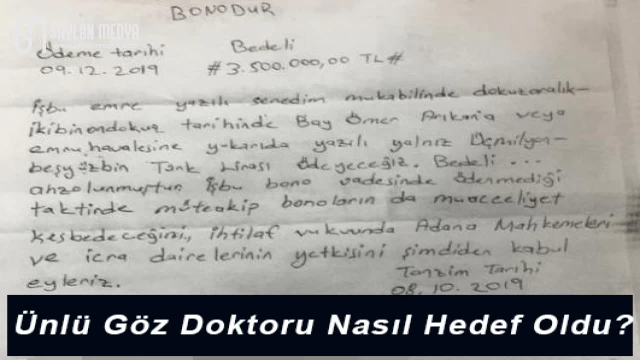 BAYLAN MEDYA
BONODUR
Ödeme tarihi Bedeli
09.12.2019 #3.500.000,00 TL#
İşbu emre yazılı senedim mukabilinde dokuzaralık-
ikibinondokuz tarihinde Bay Ömer Arıkan'a veya
emruhavalesine yukarıda yazılı yalnız Üçmilyon-
beşyüzbin Türk Lirası ödeyeceğiz. Bedeli ...
ahzolunmuştur. İşbu bono vadesinde ödenmediği
taktinde müteakip bonoların da muacceliyet
kesbedeceğini, ihtilaf vukuunda Adana Mahkemeleri
ve icra dairelerinin yetkisini şimdiden kabul
eyleriz. Tanzim Tarihi
08.10.2019
Ünlü Göz Doktoru Nasıl Hedef Oldu?